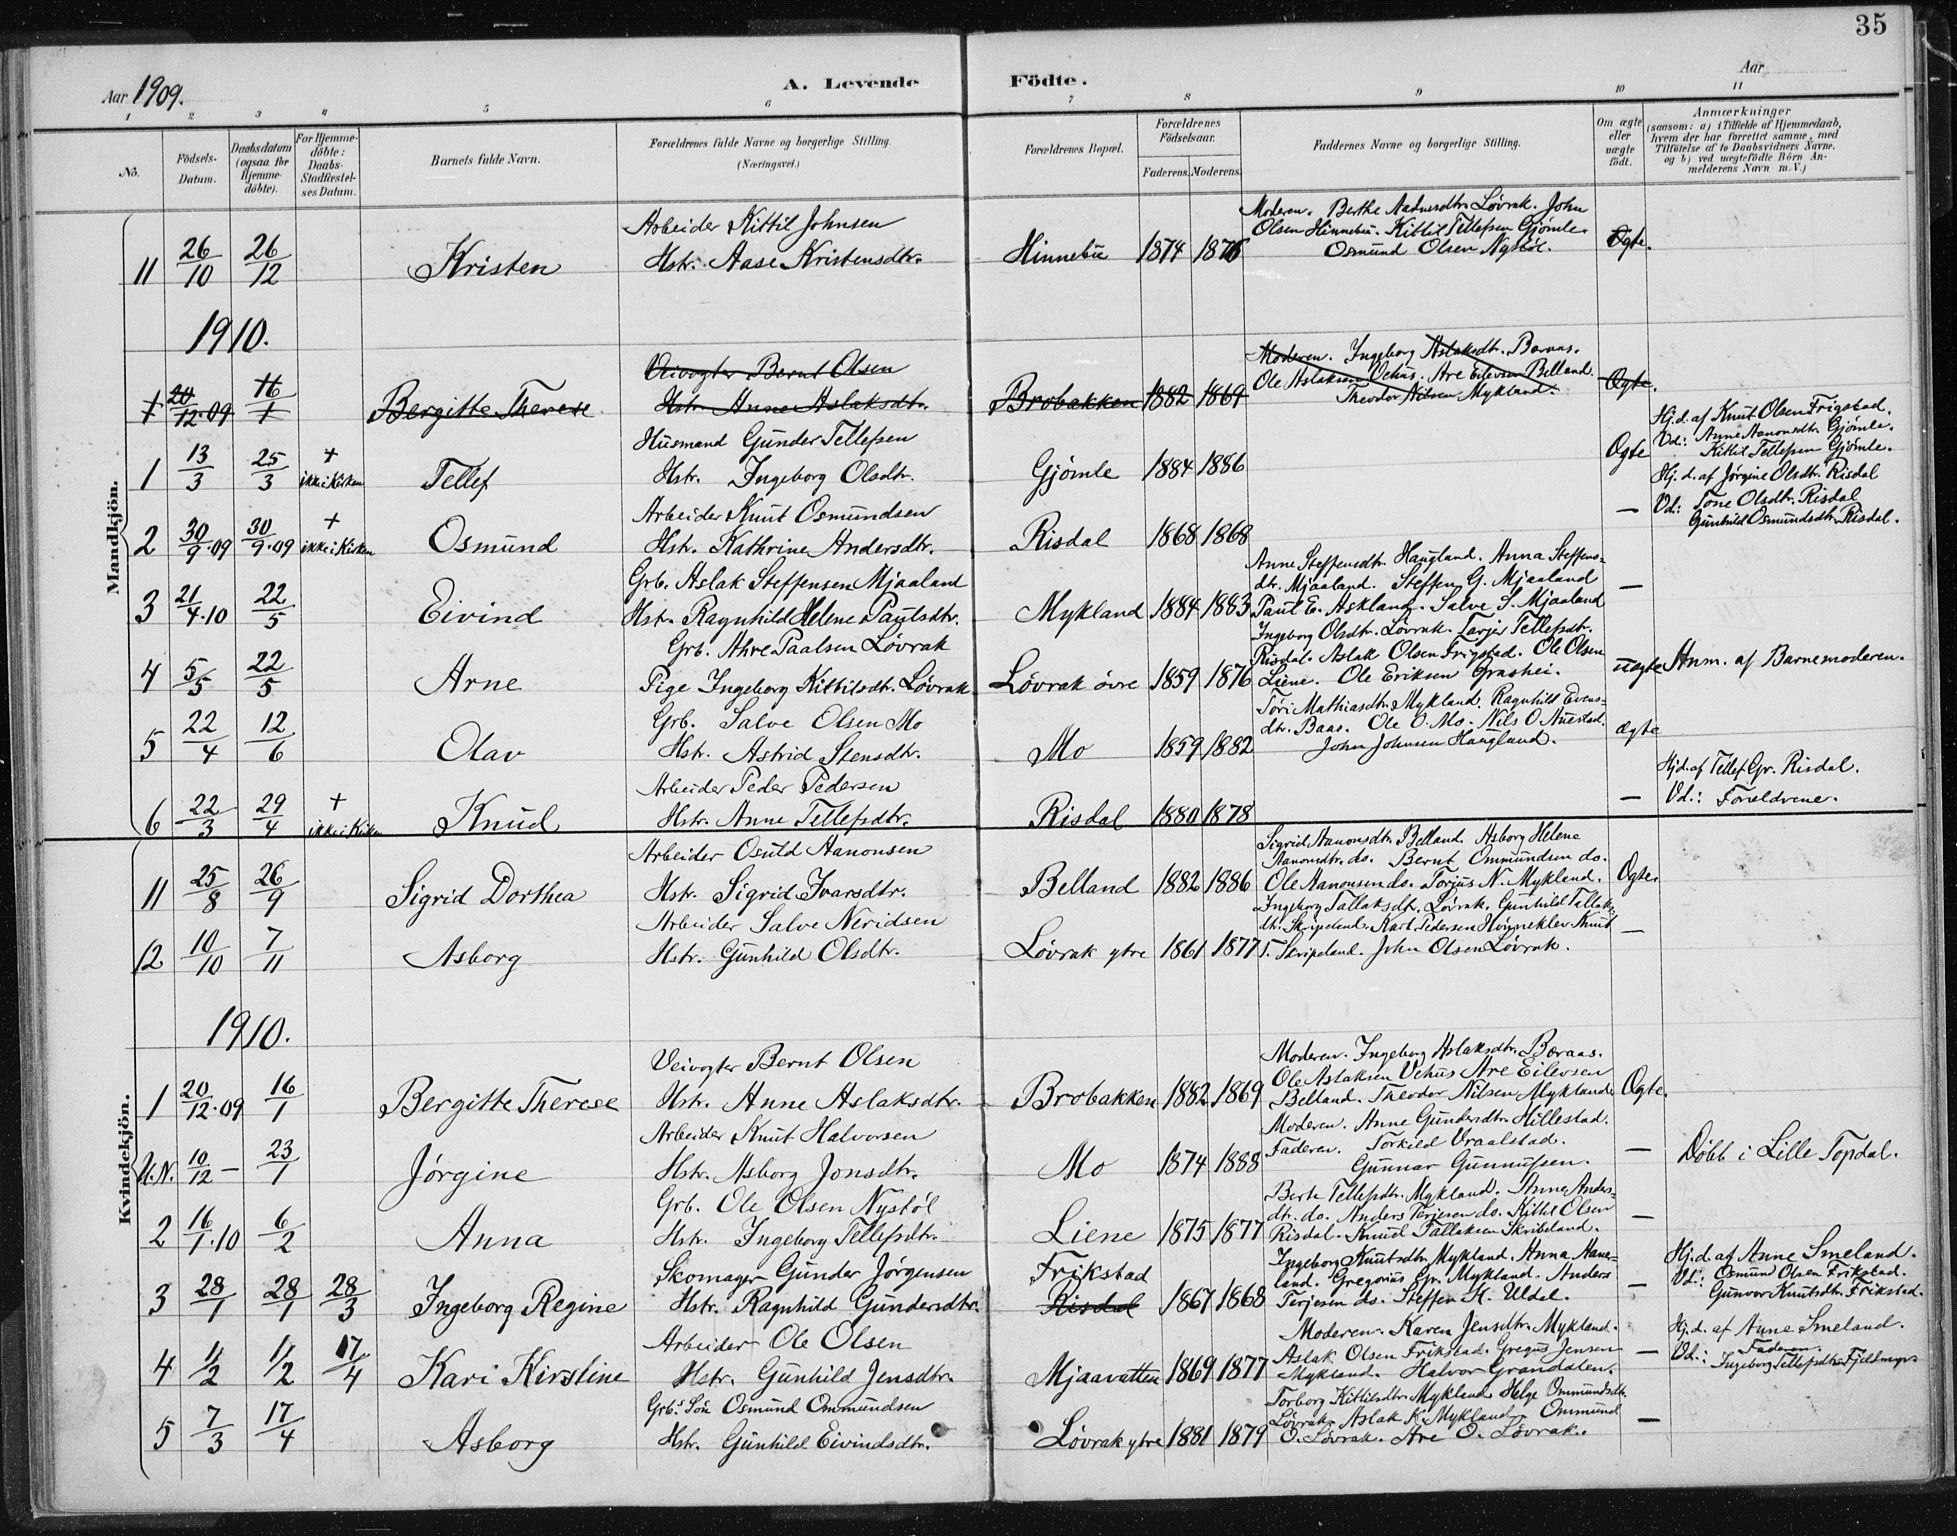 35
Aar 1909.
A. Levende Födte.
Aar
1 2 3 4 5 6 7 8 9 10 11
No.
Födsels-Datum.
Daabsdatum (ogsaa for Hjemme-döbte).
For Hjemme-döbte: Daabs-Stadfæstel-ses Datum.
Barnets fulde Navn.
Forældrenes fulde Navne og borgerlige Stilling. (Næringsvei.)
Forældrenes Bopæl.
Forældrenes Födselsaar.
Faderens. Moderens.
Faddernes Navne og borgerlige Stilling.
Om ægte eller uægte födt.
Anmærkninger
(saasom: a) i Tilfælde af Hjemmedaab, hvem der har forrettet samme, med Tilföielse af to Daabsvidners Navne, og b) ved uægtefödte Börn An-melderens Navn m.V.)
Mandkjön.
11 26/10 26/12 Kristen
Arbeider Kittil Johnsen
Hstr. Aase Kristensdtr.
Hinnebu 1874 1876
Moderen. Berthe Aadnesdtr. Løvrak. John
Olsen Hinnebu. Kittil Tellefsen Gjømle.
Osmund Olsen Nystøl.
Ægte.
1910.
1 20/12.09 16/1 Bergitte Therese
Veivogter Bernt Olsen
Hstr. Anne Aslaksdtr.
Brobakken 1882 1869
Moderen. Ingeborg Aslaksdtr. Baraas.
Ole Aslaksen Vehus. Are Eilevsen Belland.
Theodor Nilsen Mykland.
Ægte.
1 13/3 25/3 + ikke i Kirken Tellef
Husmand Gunder Tellefsen
Hstr. Ingeborg Olsdtr.
Gjømle 1884 1886
Ægte
Hj.d. af Knut Olsen Frigstad.
Vd.: Anne Aanonsdtr. Gjømle.
Kittil Tellefsen Gjømle.
2 30/9.09 30/9.09 + ikke i Kirken Osmund
Arbeider Knut Osmundsen
Hstr. Kathrine Andersdtr.
Risdal 1868 1868
—
Hj. d. af Jørgine Olsdtr. Risdal
Vd.: Tone Olsdtr. Risdal
Gunhild Osmundsdtr. Risdal.
3 21/4.10 22/5 Eivind
Grb. Aslak Steffensen Mjaaland
Hstr. Ragnhild Helene Paulsdtr.
Mykland 1884 1883
Anne Steffensdtr. Haugland. Anna Steffens-
dtr. Mjaaland. Steffen G. Mjaaland
Paul E. Askland. Salve S. Mjaaland
—
4 5/5 22/5 Arne
Grb. Ahre Paalsen Løvrak
Pige Ingeborg Kittilsdt. Løvrak
Løvrak øvre 1859 1876
Ingeborg Olsdtr. Løvrak. Tarjer Tellefsdtr.
Risdal. Aslak Olsen Frigstad. Ole Olsen
Liene. Ole Eriksen Grashei.
uægte
Anm. af Barnemoderen.
5 22/4 12/6 Olav
Grb. Salve Olsen Mo
Hstr. Astrid Stensdtr.
Mo 1859 1882
Tøri Mathiasdtr. Mykland. Ragnhild Evens-
dtr. Baas. Ole O. Mo. Nils O. Nuestad.
John Johnsen Haugland.
ægte
6 22/3 29/4 + ikke i Kirken Knud
Arbeider Peder Pedersen
Hstr. Anne Tellefsdtr.
Risdal 1880 1878
—
Hj.d. af Tellef Gr. Risdal.
Vd.: Forældrene.
Kvindekjön.
11 25/8 26/9 Sigrid Dorthea
Arbeider Osuld Aanonsen
Hstr. Sigrid Ivarsdtr.
Belland 1882 1886
Sigrid Aanonsdtr. Belland. Asborg Helene
Aanonsdtr. do. Bernt Ommundsen do.
Ole Aanonsen do. Torjus N. Mykland.
Ægte.
12 10/10 7/11 Asborg
Arbeider Salve Neridsen
Hstr. Gunhild Olsdtr.
Løvrak ytre 1861 1877
Ingeborg Tallaksdt. Løvrak. Gunhild Tallaks
dtr. Skripeland. Karl Pedersen Hvinneklev. Knut
T. Skripeland. John Olsen Løvrak.
—
1910.
1 20/12.09 16/1 Bergitte Therese
Veivogter Bernt Olsen
Hstr. Anne Aslaksdtr.
Brobakken 1882 1869
Moderen. Ingeborg Aslaksdtr. Baraas.
Ole Aslaksen Vehus Are Eilevsen
Belland. Theodor Nilsen Mykland.
Ægte.
U.N. 10/12 — 23/1 Jørgine
Arbeider Knut Halvorsen
Hstr. Asborg Jonsdtr.
Mo 1874 1888
Moderen. Anne Gundersdtr. Hillestad.
Faderen. Torkild Vraalstad.
Gunnar Gunnufsen.
—
Døbt i Lille Topdal.
2 16/1.10 6/2 Anna
Grb. Ole Olsen Nystøl
Hstr. Ingeborg Tellefsdtr.
Liene 1875 1877
Berte Tellefsdtr. Mykland. Anne Anders-
dtr. do. Anders Terjesen do. Kittel Olsen
Risdal. Knud Tallaksen Skribeland.
—
3 28/1 28/1 28/3 Ingeborg Regine
Skomager Gunder Jørgensen
Hstr. Ragnhild Gundersdtr.
Frikstad
Risdal 1867 1868
Ingeborg Knutsdtr. Mykland. Anna Haue-
land. Gregorius Gr. Mykland. Anders
Terjesen do. Steffen H. Uldal.
—
Hj.d. af Anne Smeland.
Vd.: Osmund Olsen Frikstad.
Gunvor Knutsdtr. Frikstad.
4 1/2 1/2 17/4 Kari Kirstine
Arbeider Ole Olsen
Hstr. Gunhild Jensdtr.
Mjaavatten 1869 1877
Moderen. Karen Jensdtr. Mykland.
Aslak Olsen Frikstad. Gregus Jensen
Mykland. Halvor Grandalen.
—
Hj.d. af Anne Smeland.
Vd.: Faderen.
Ingeborg Tellefsdtr. Fjeldmyr.
5 7/3 17/4 Asborg
Grb.s Søn Osmund Ommundsen
Hstr. Gunhild Eivindsdtr.
Løvrak ytre 1881 1879
Torborg Kittilsdtr. Mykland. Helge Ommundsdtr.
Løvrak. Aslak K. Mykland. Ommund
O. Løvrak. Are O. Løvrak.
—